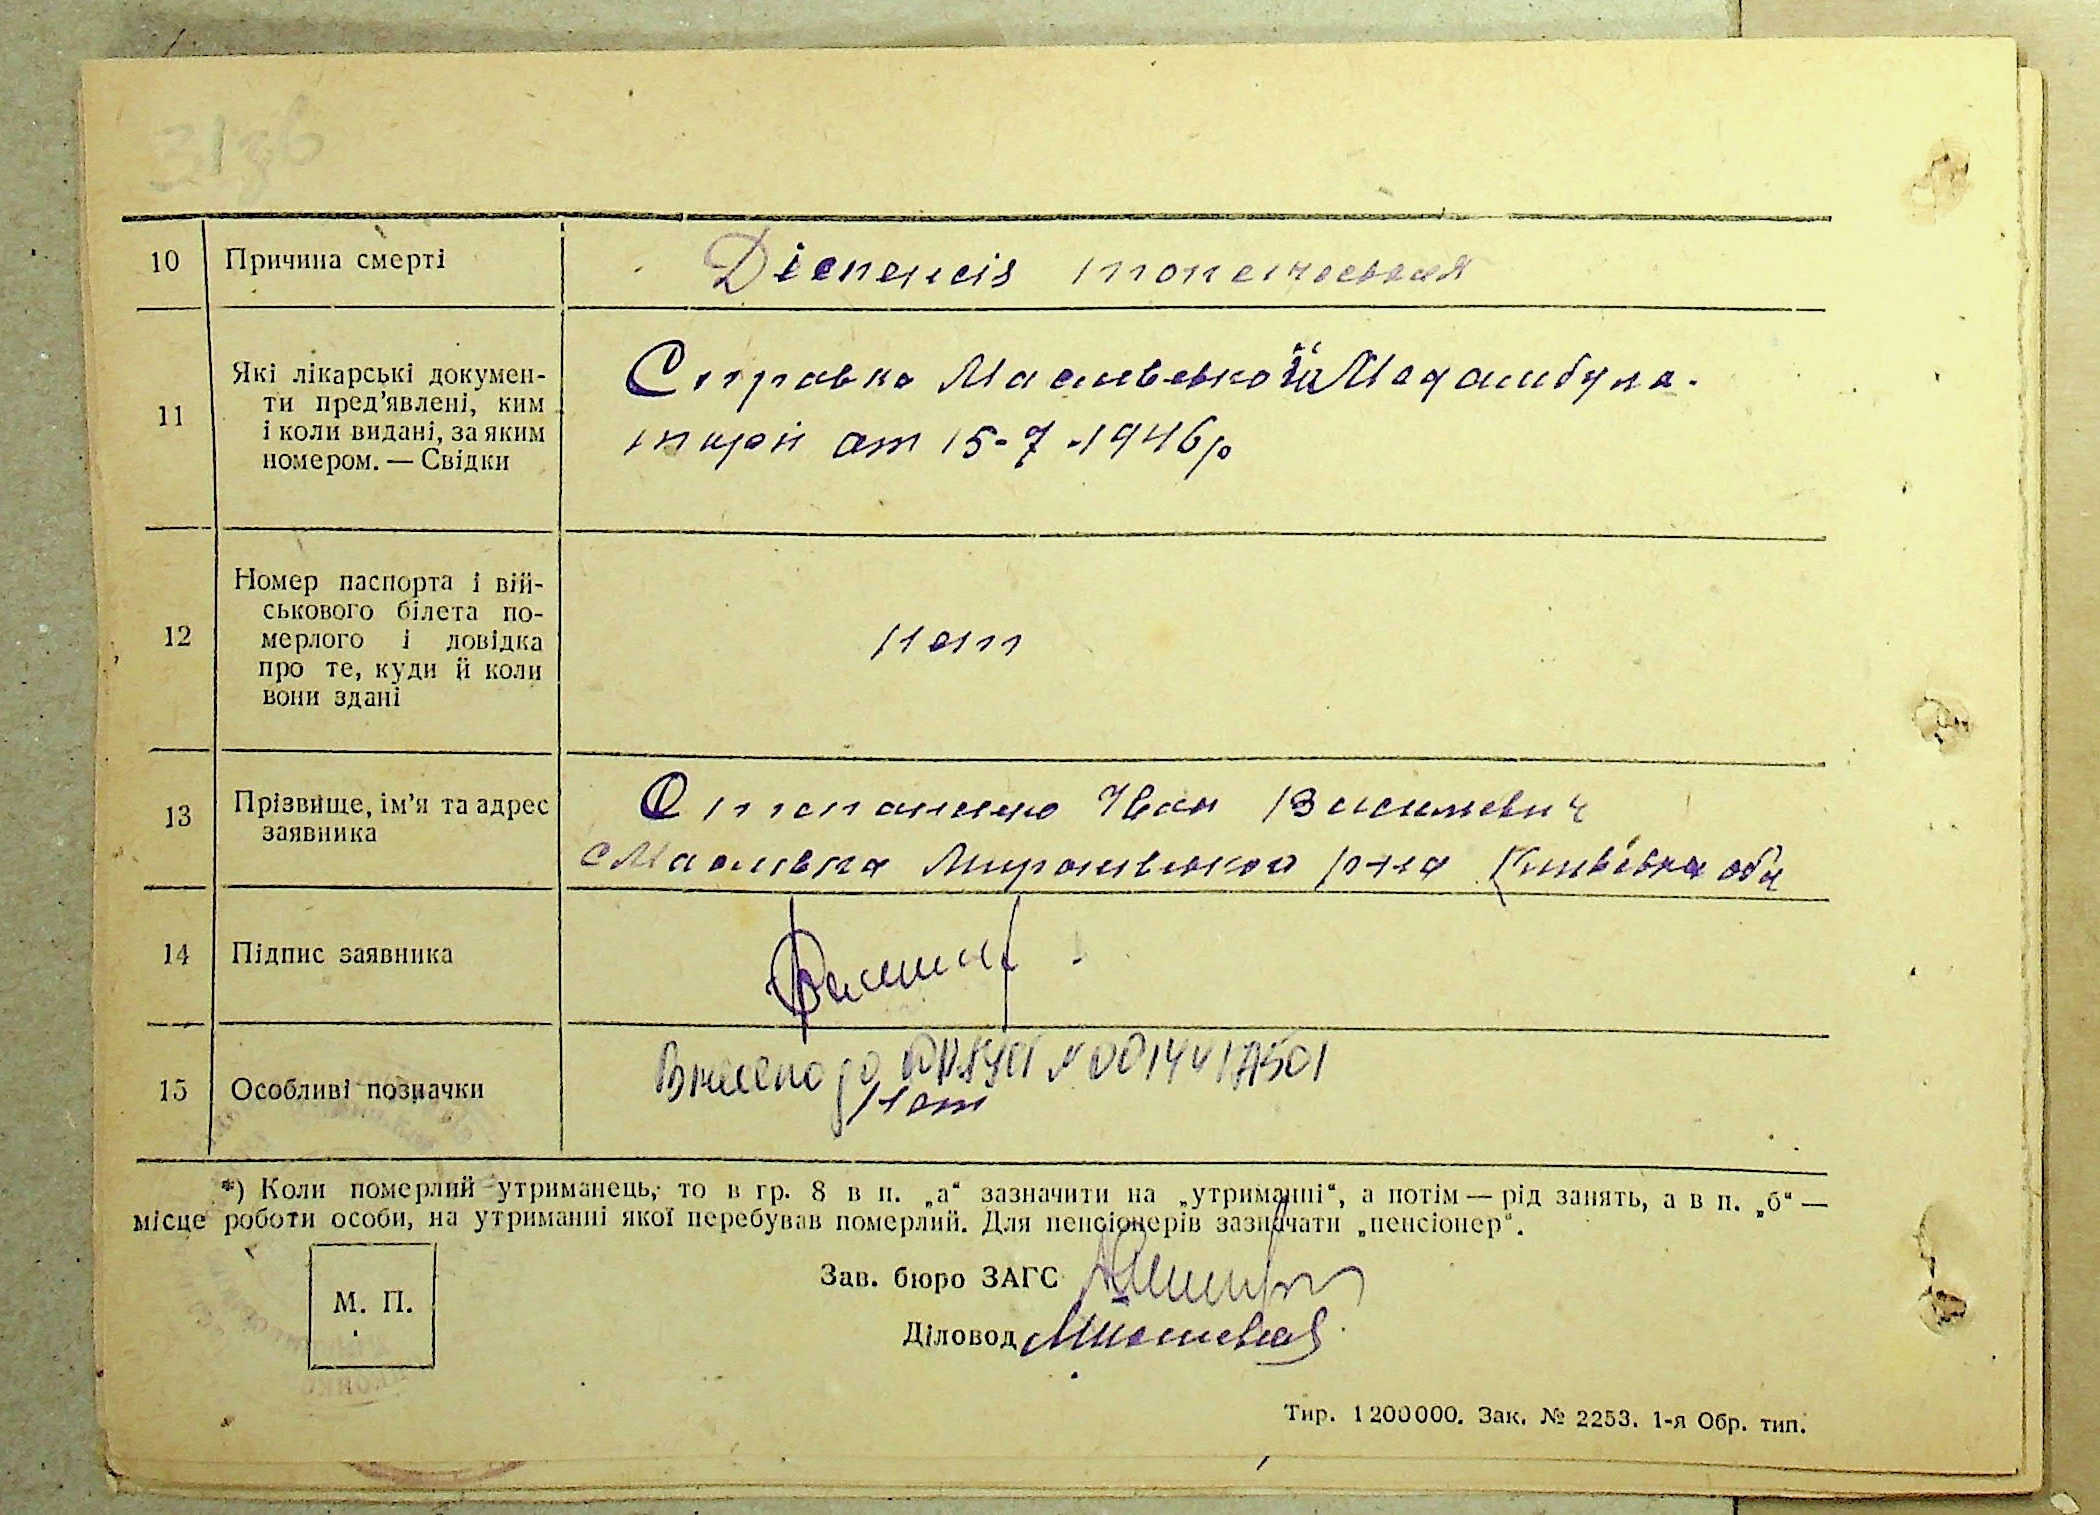 10 Причина смерті
Діспенсія
11 Які лікарські докумен-
ти пред'явлені, ким
і коли видані, за яким
номером. — Свідки
Справка Маслівської Медамбула-
торій от 15-7-1946р
12 Номер паспорта і вій-
ськового білета по-
мерлого і довідка
про те, куди й коли
вони здані
нет
13 Прізвище, ім'я та адрес
заявника
Иван Василевич
с Маслівка Миронівского р-на обл
14 Підпис заявника
15 Особливі позначки
Внесено до
нет
*) Коли померлий утриманець, то в гр. 8 в п. „а“ зазначити на „утриманні“, а потім — рід занять, а в п. „б“ —
місце роботи особи, на утриманні якої перебував померлий. Для пенсіонерів зазначати „пенсіонер“.
М. П.
Зав. бюро ЗАГС
Діловод
Тир. 1200000. Зак. № 2253. 1-я Обр. тип.